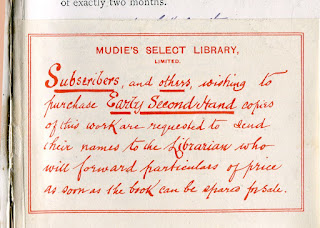 of exactly two months.
MUDIE'S SELECT LIBRARY,
LIMITED.
Subscribers, and others, wishing to
purchase Early Second Hand copies
of this work are requested to send
their names to the Librarian who
will forward particulars of price
as soon as the book can be spared for sale.